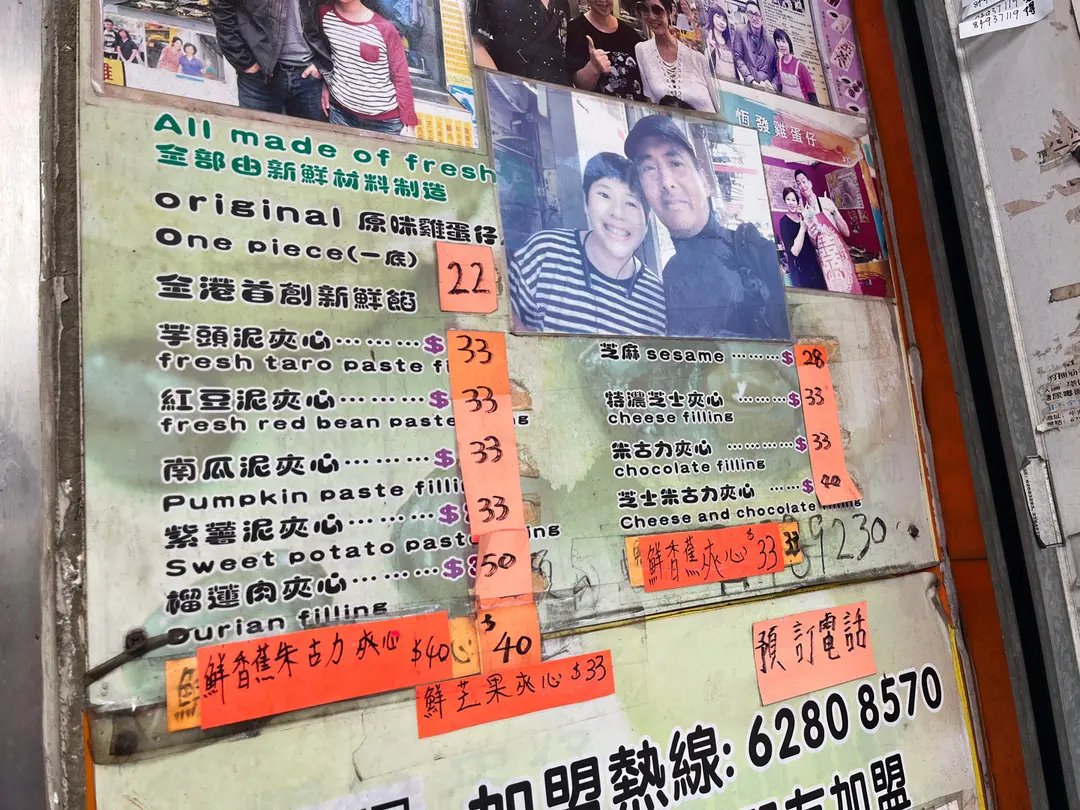 恆發雞蛋仔
All made of fresh
全部由新鮮材料制造
original 原味雞蛋仔
One piece(一底) 22
全港首創新鮮餡
芋頭泥夾心………$ 33
fresh taro paste fi
紅豆泥夾心………$ 33
fresh red bean paste
南瓜泥夾心………$ 33
Pumpkin paste filli
紫薯泥夾心………$ 33
Sweet potato paste
榴蓮肉夾心………$ 50
Durian filling
鮮香蕉朱古力夾心 $40
$40
鮮芒果夾心 $33
芝麻 sesame ……$ 28
特濃芝士夾心 ……$ 33
cheese filling
朱古力夾心 ……$ 33
chocolate filling
芝士朱古力夾心 ……$ 40
Cheese and chocolate
鮮香蕉夾心 $33
預訂電話
加盟熱線: 6280 8570